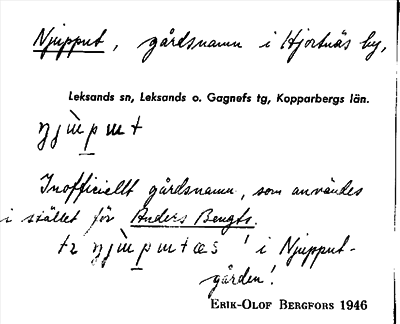 Njupput, gårdsnamn i Hjortnäs by,
Leksands sn, Leksands o. Gagnefs tg, Kopparbergs län.
Inofficiellt gårdsnamn, som användes
i stället för Anders Bengts.
i Njupput-
gården!
ERIK-OLOF BERGFORS 1946